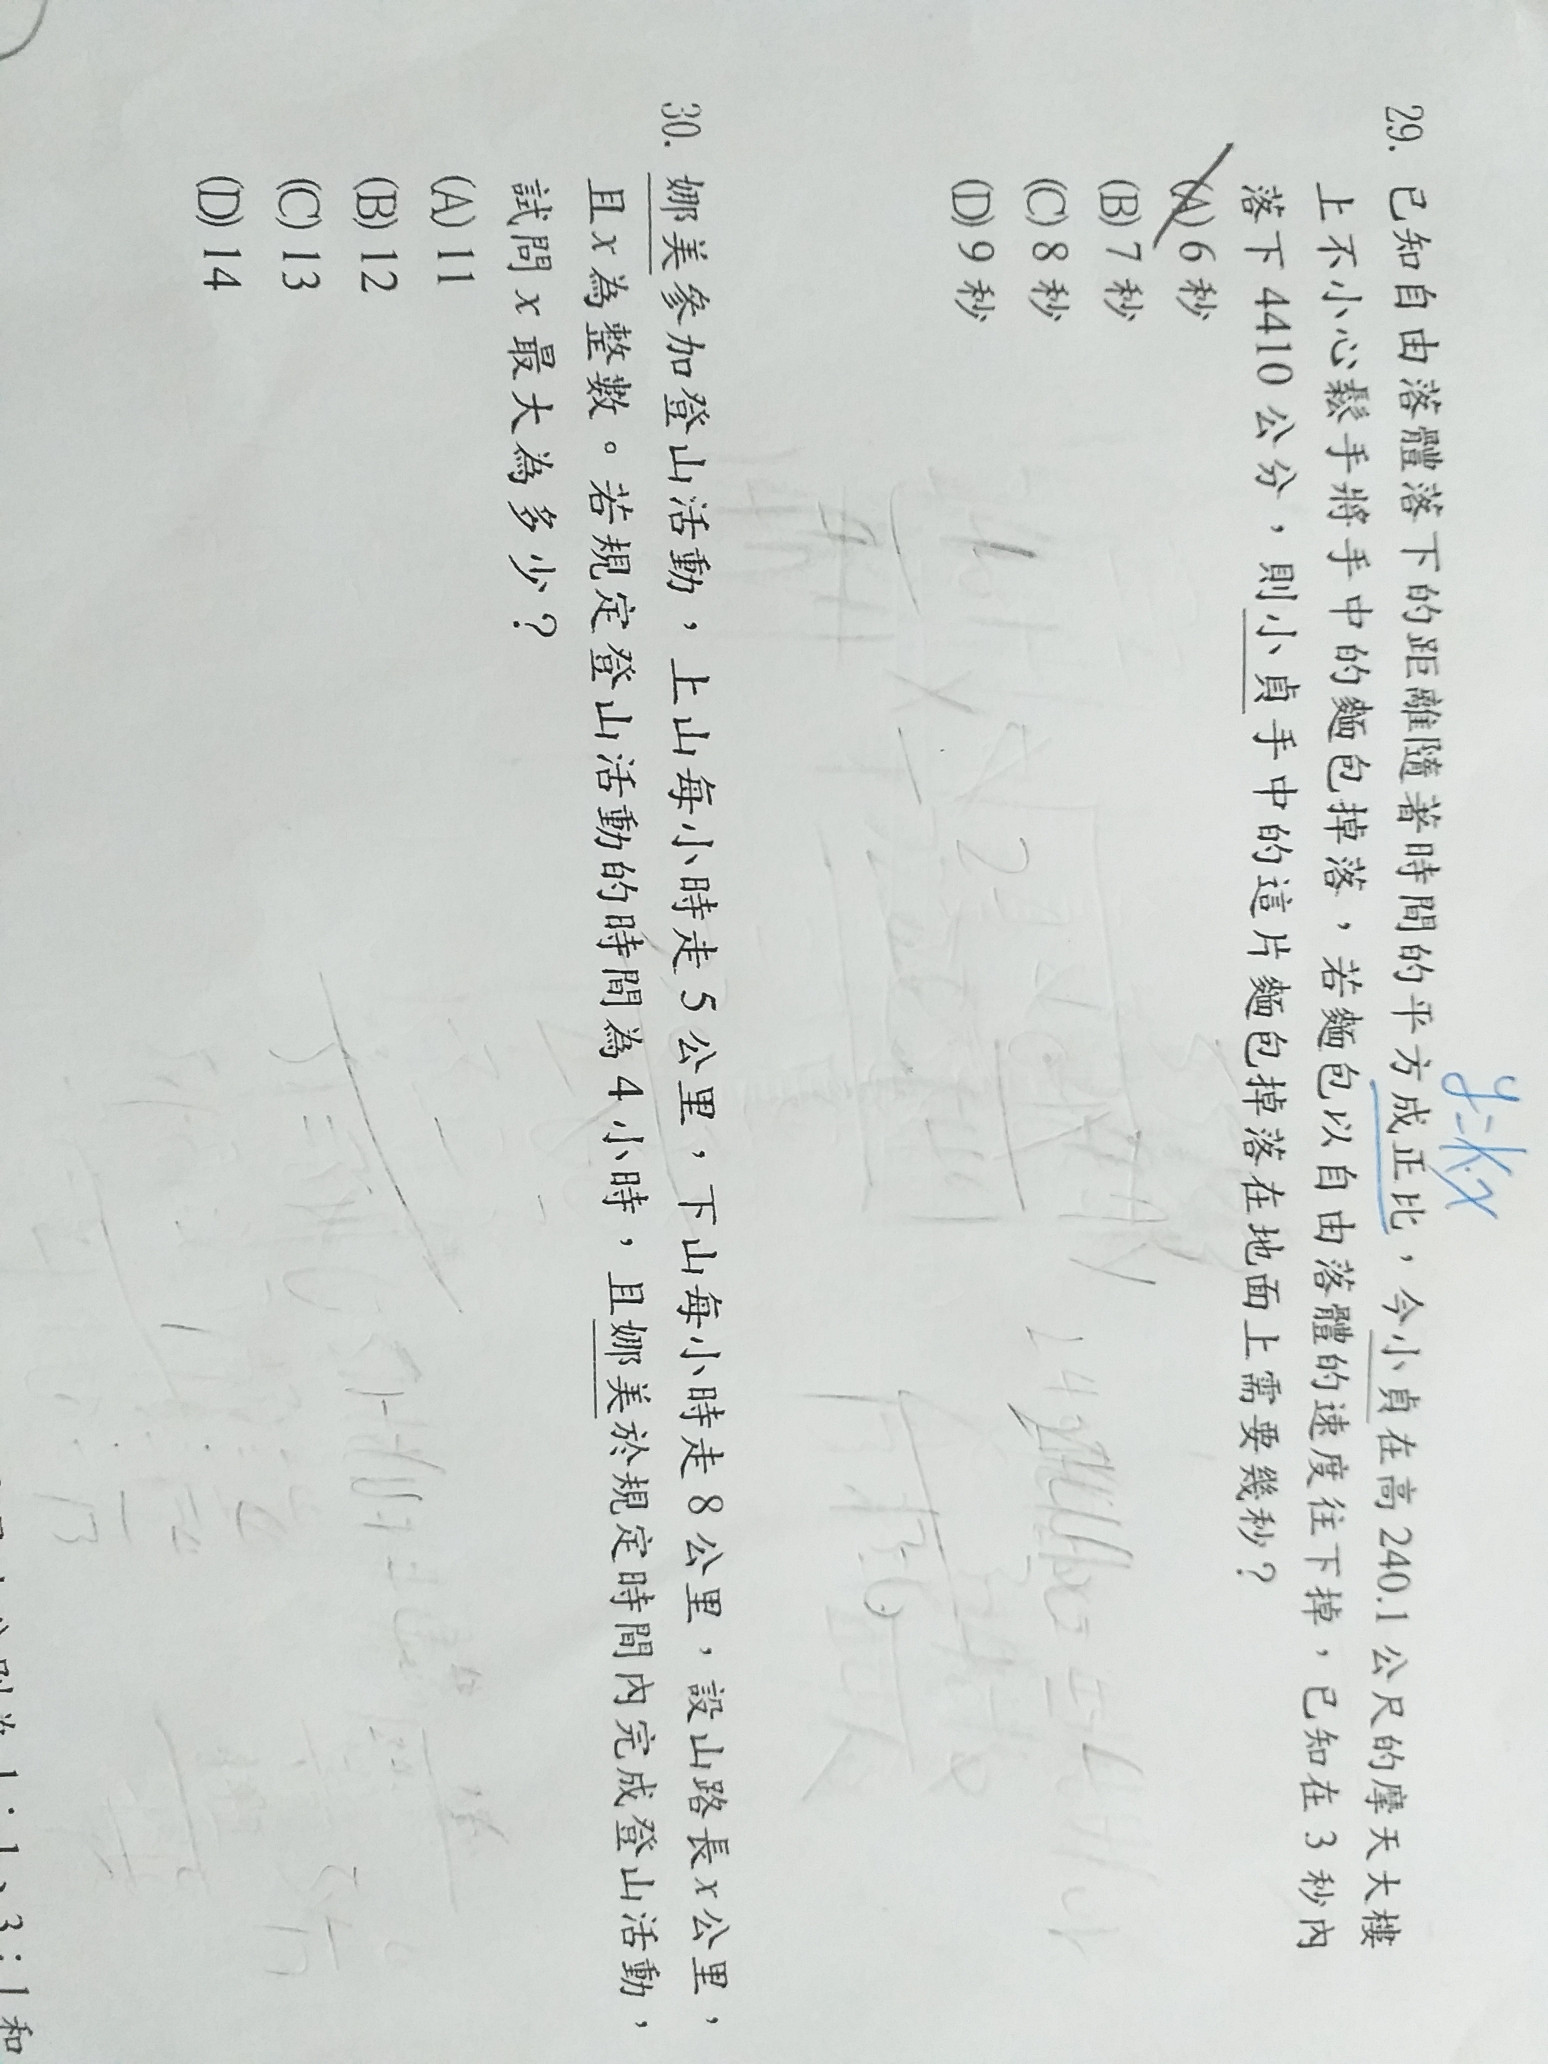 y=k·x
29. 已知自由落體落下的距離隨著時間的平方成正比，今小貞在高 240.1 公尺的摩天大樓
上不小心鬆手將手中的麵包掉落，若麵包以自由落體的速度往下掉，已知在 3 秒內
落下 4410 公分，則小貞手中的這片麵包掉落在地面上需要幾秒？
(A) 6 秒
(B) 7 秒
(C) 8 秒
(D) 9 秒
30. 娜美參加登山活動，上山每小時走 5 公里，下山每小時走 8 公里，設山路長 x 公里，
且 x 為整數。若規定登山活動的時間為 4 小時，且娜美於規定時間內完成登山活動，
試問 x 最大為多少？
(A) 11
(B) 12
(C) 13
(D) 14
1：1、3：1和